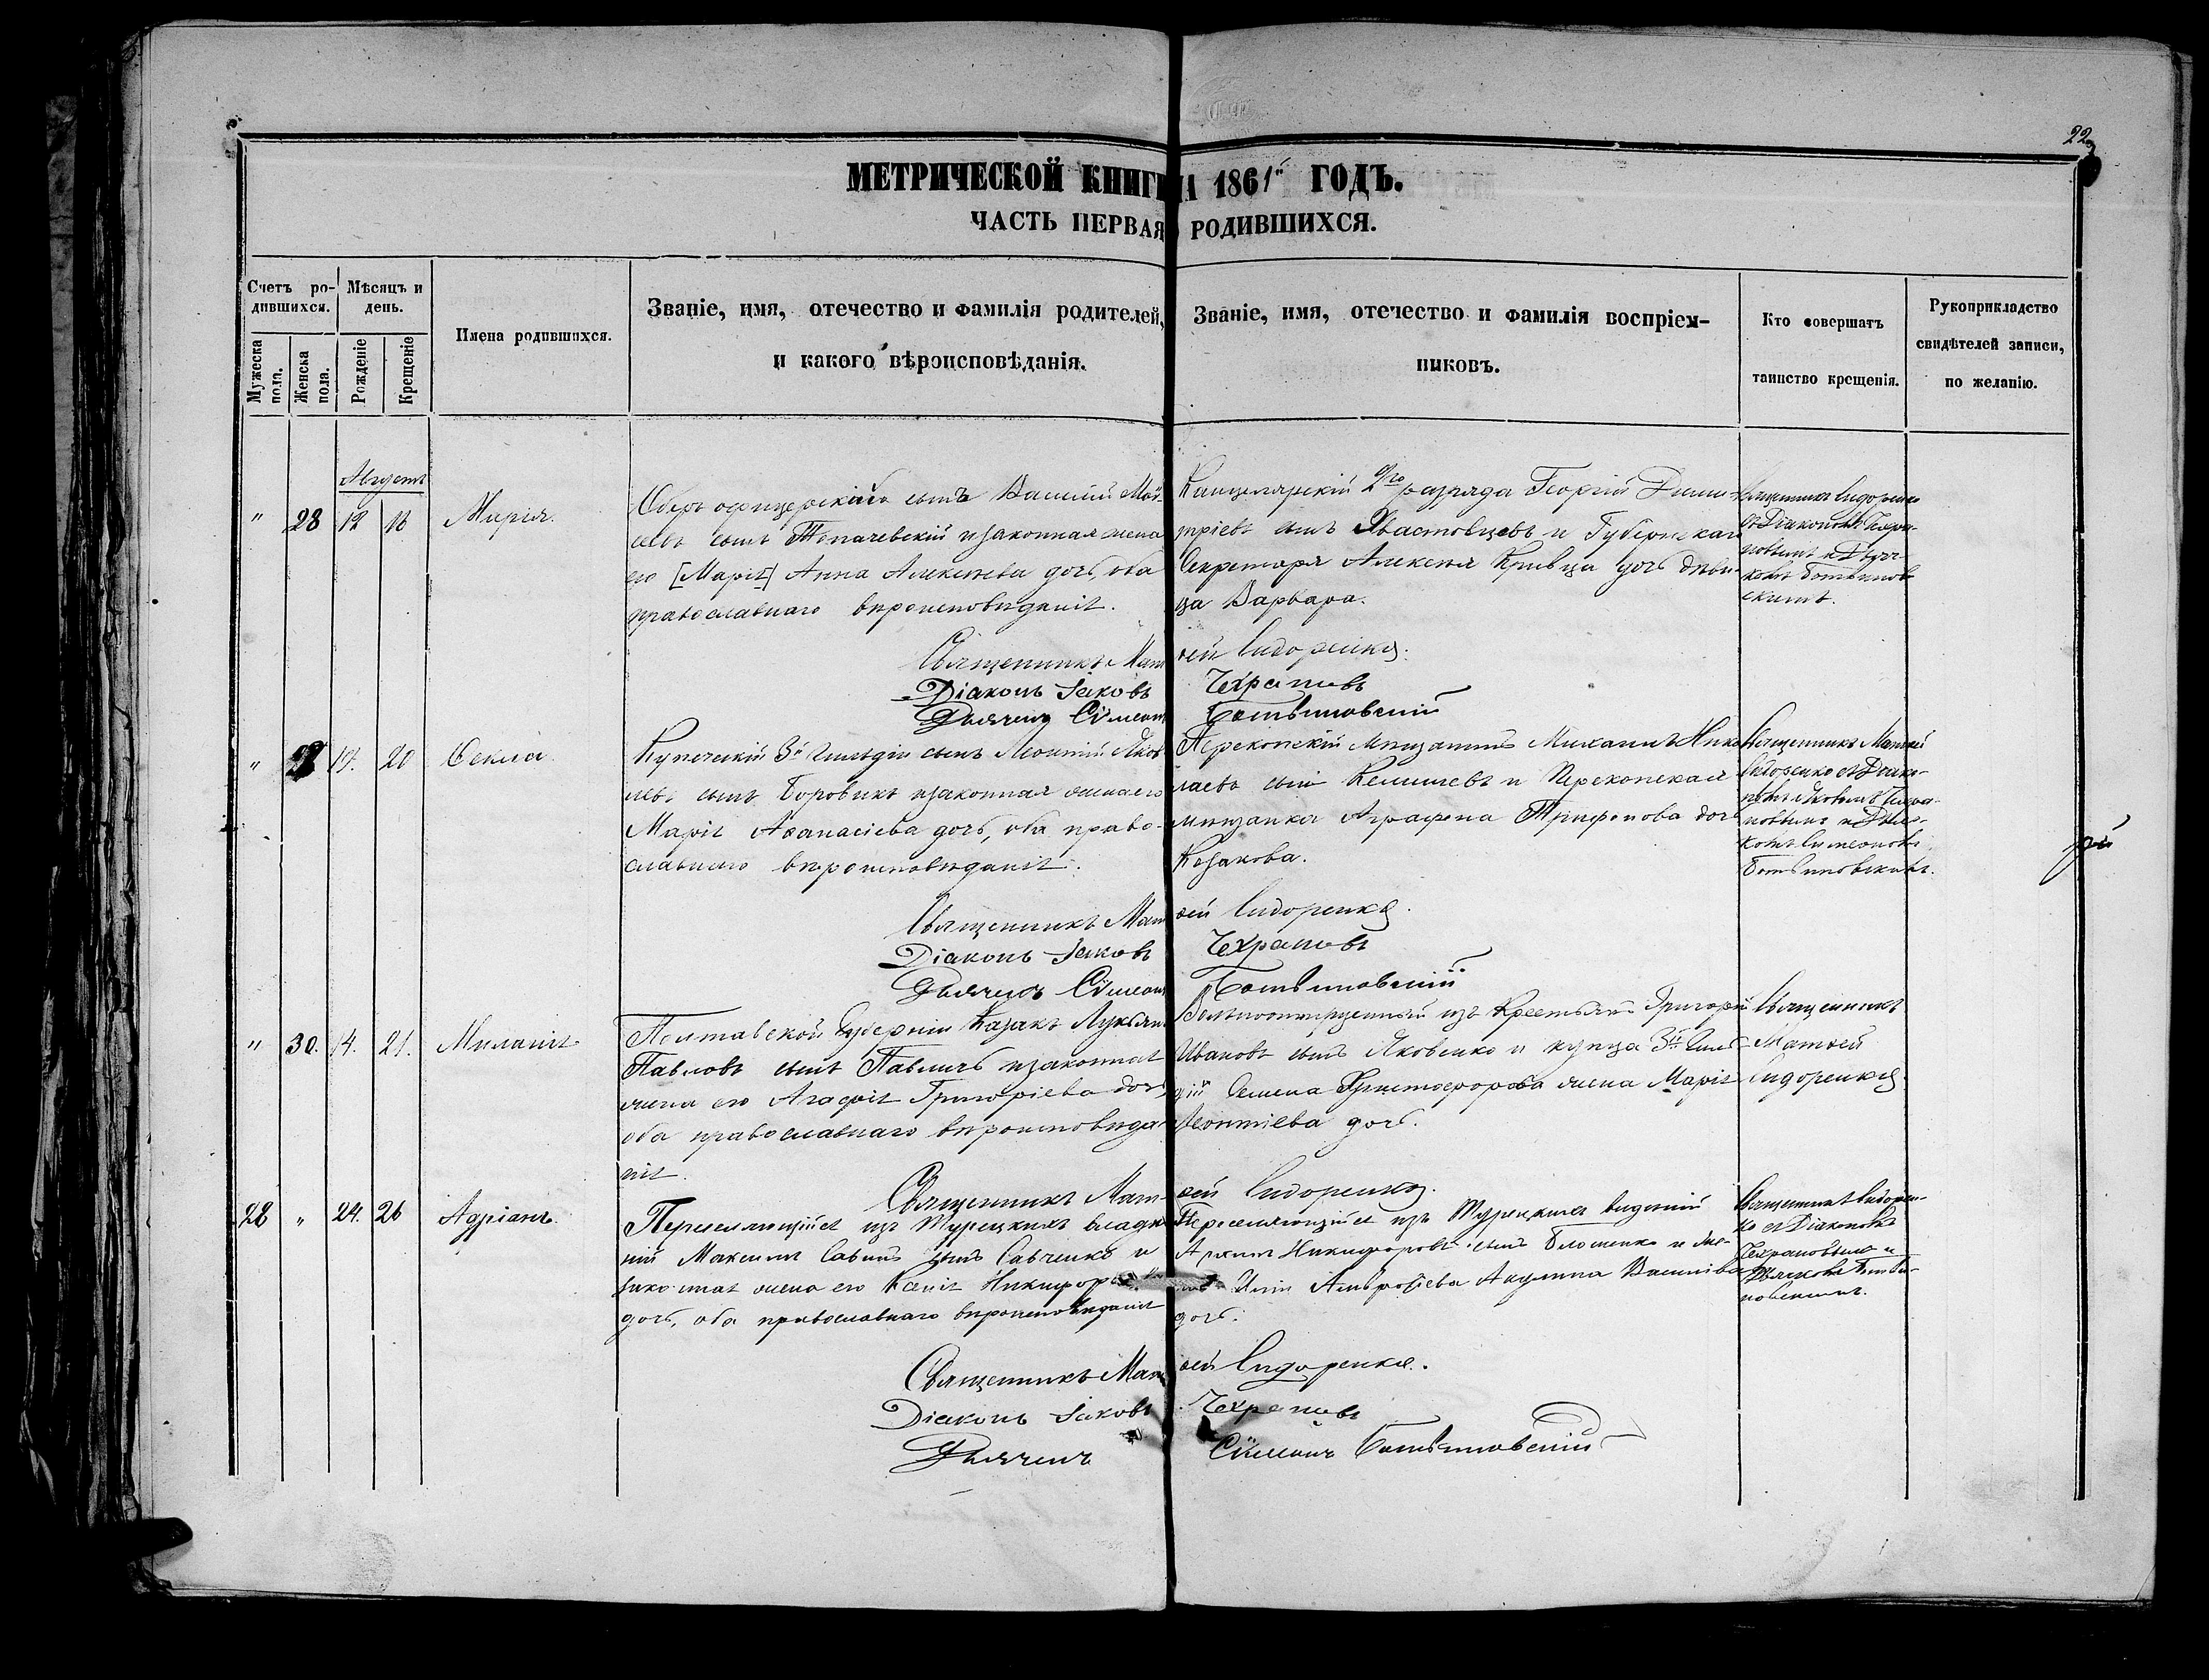 22
МЕТРИЧЕСКОЙ КНИГИ НА 1861й ГОДЪ.
ЧАСТЬ ПЕРВАЯ РОДИВШИХСЯ.
Счетъ родившихся.
Мужеска пола.
Женска пола.
Мѣсяцъ и день.
Рожденіе
Крещеніе
Имена родившихся.
Званіе, имя, отечество и фамилія родителей,
и какого вѣроисповѣданія.
Званіе, имя, отечество и фамилія воспріем-
никовъ.
Кто совершатъ
таинство крещенія.
Рукоприкладство
свидѣтелей записи,
по желанію.
Августъ
" 28 12 18 Марія.
Оберъ офицерскій сынъ Василій Мои-
сеевъ сынъ Топачевскій и законная жена
его [Марія] Анна Алексѣева дочь, оба
православнаго вѣроисповѣданія.
Канцелярскій 2го разряда Георгій Дими-
тріевъ сынъ Хвастовцевъ и Губернскаго
Секретаря Алексѣя Кривца дочь дѣви-
ца Варвара.
Священникъ Сидоренко
съ Діакономъ Чехра-
новымъ и Дьяч-
комъ Ботвинов-
скимъ.
Священникъ Матѳей Сидоренко.
Діаконъ Іаковъ Чехрановъ
Дьячекъ Сѵмеонъ Ботвиновскій
" 19. 20 Ѳекла.
Купеческій 3й гильдіи сынъ Леонтій Яков-
левъ сынъ Боровикъ и законная жена его
Марія Аѳанасіева дочь, оба право-
славнаго вѣроисповѣданія.
Перекопскій мѣщанинъ Михаилъ Нико-
лаевъ сынъ и Перекопская
мѣщанка Аграфена Трифонова дочь
Козакова.
Священникъ Матѳей
Сидоренко съ Діако-
номъ Яковомъ Чехра-
новымъ и Дьяч-
комъ Симеономъ
Ботвиновскимъ.
Священникъ Матѳей Сидоренко.
Діаконъ Іаковъ Чехрановъ
Дьячекъ Сѵмеонъ Ботвиновскій
" 30. 14. 21. Миланія.
Полтавской Губерніи Казакъ Лукьянъ
Павловъ сынъ Павличъ и законная
жена его Агафія Григоріева дочь,
оба православнаго вѣроисповѣда-
нія.
Вольноотпущенный изъ Крестьянъ Григорій
Ивановъ сынъ Яковенко и купца 3й гиль-
діи Семена Христофорова жена Марія
Леонтіева дочь.
Священникъ
Матѳей
Сидоренко.
Священникъ Матѳей Сидоренко.
28 " 24. 26 Адріанъ.
Переселяющійся изъ Турецкихъ владѣ-
ній Максимъ Савинъ сынъ Савченко и
законная жена его Ксенія Никифорова
дочь, оба православнаго вѣроисповѣданія
Переселяющійся изъ Турецкихъ владѣній
Никифоровъ сынъ и же-
на Иліи Амвросіева Акулина Василіева
дочь.
Священникъ Сидорен-
ко съ Діакономъ
Чехрановымъ и
Дьячкомъ Ботви-
новскимъ.
Священникъ Матѳей Сидоренко.
Діаконъ Іаковъ Чехрановъ
Дьячекъ Сѵмеонъ Ботвиновскій